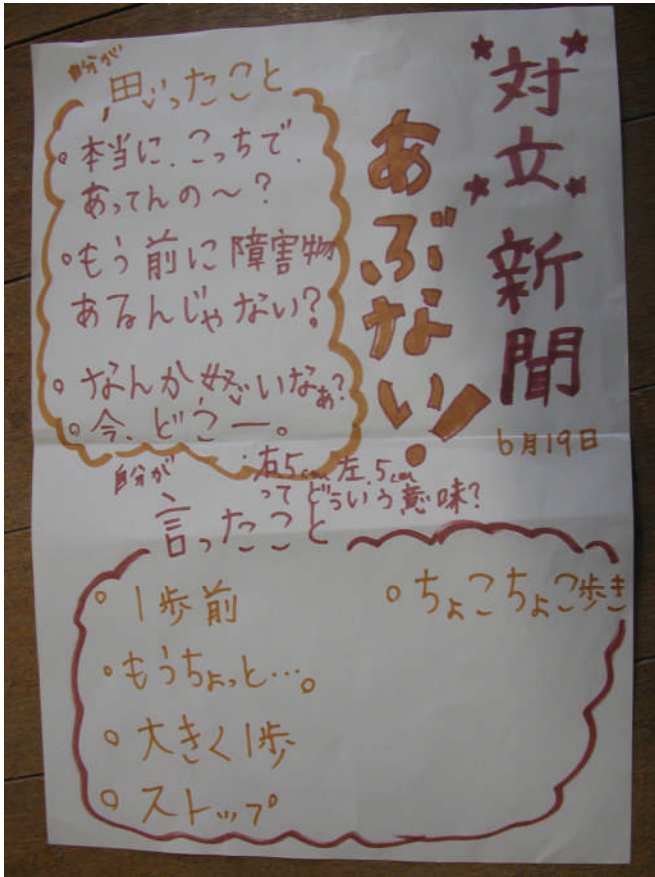 対立新聞
6月19日
あぶない!
自分が
思いったこと
。本当に、こっちで、
あってんの〜?
。もう前に障害物
あるんじゃない?
。なんか怒いなぁ?
。今、どこー。
・右5cm左.5cm
ってどういう意味?
自分が
言ったこと
。1歩前
。もうちょっと…。
。大きく1歩
。ストップ
。ちょこちょこ歩き